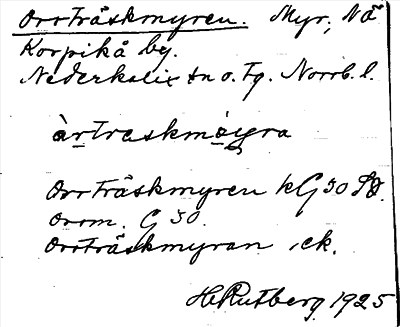 Orrträskmyren. Myr, NÄ
Korpikå by.
Nederkalix tn o. fg. Norrb. l.
àrtraskmǫ̀yra
Orrträskmyren kG 30 SO.
Orom. G 30.
Orrträskmyran ,ck.
H Rutberg 1925